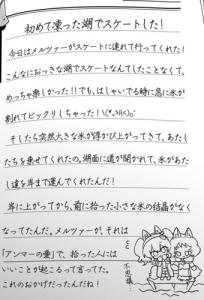 初めて凍った湖でスケートした!
今日はメルツァーがスケートに連れて行ってくれた!
こんなにおっきな湖でスケートなんてしたことなくて、
めっちゃ楽しかった!!でも、はしゃいでる時に急に氷が
割れてビックリしちゃった!
そしたら突然大きな氷が浮かび上がってきて、あたし
たちを乗せてくれたの。湖面に道が開かれて、氷があた
し達を岸まで運んでくれたんだ!
岸に上がってから、前に拾った小さな氷の結晶がなく
なってたんだ。メルツァーが、それは
「アンマーの愛」で、拾った人には
いいことが起こるって言ってた。
これのおかげだったんだね!
不思議…